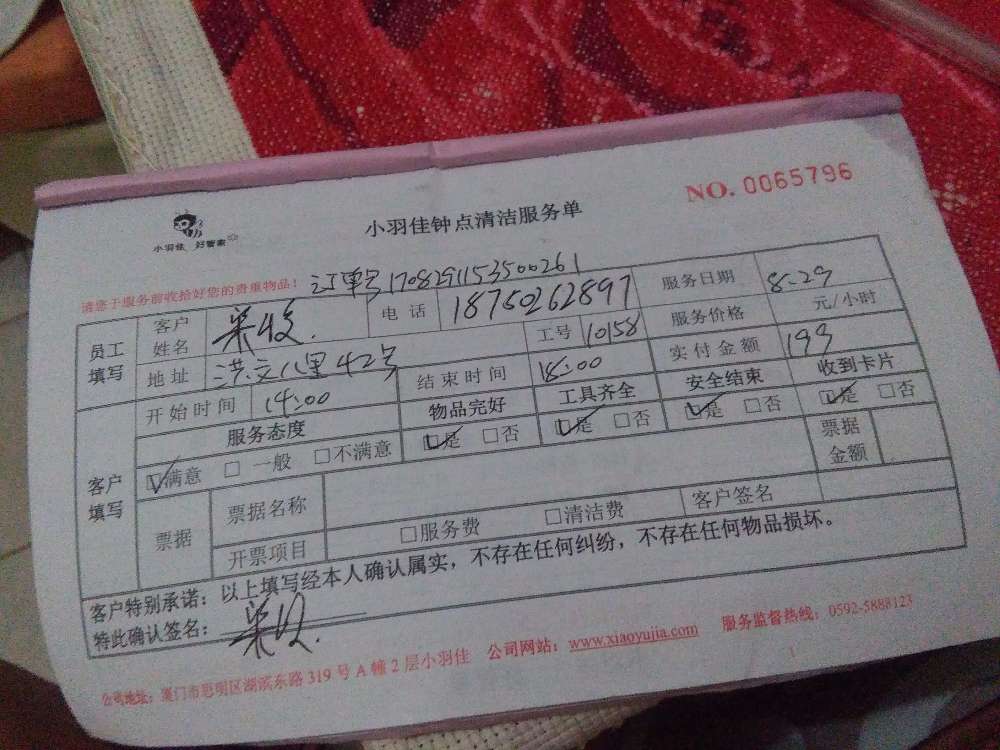 小羽佳 好管家
小羽佳钟点清洁服务单
NO. 0065796
请您于服务前收拾好您的贵重物品！ 订单号170829115350026 1
员工填写 客户姓名 电话 18750262897 服务日期 8.29
地址 洪文八里42号 工号 10158 服务价格 元/小时
开始时间 14:00 结束时间 18:00 实付金额 199
客户填写 服务态度 物品完好 工具齐全 安全结束 收到卡片
☑满意 □一般 □不满意 ☑是 □否 ☑是 □否 ☑是 □否 ☑是 □否
票据 票据名称 票据金额
开票项目 □服务费 □清洁费 客户签名
客户特别承诺：以上填写经本人确认属实，不存在任何纠纷，不存在任何物品损坏。
特此确认签名：
公司地址：厦门市思明区湖滨东路319号A幢2层小羽佳 公司网站：www.xiaoyujia.com 服务监督热线：0592-5888123
1